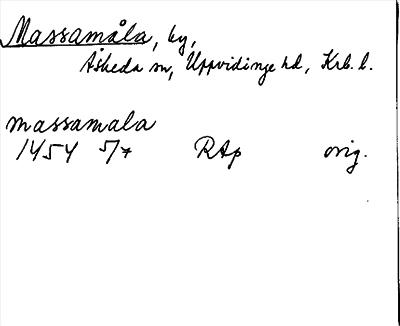 Massamåla, by,
Åsheda sn, Uppvidinge hd, Krb. l.
massamala
1454 5/7 RAp orig.